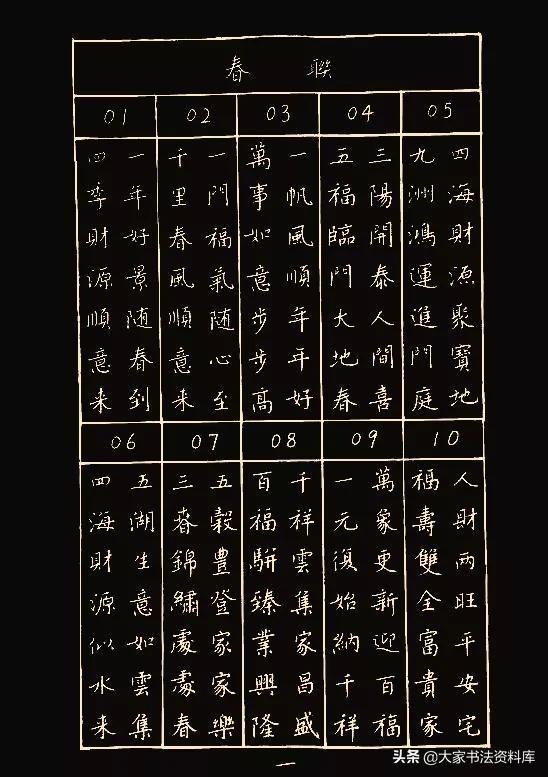 春聯
01
一年好景随春到
四季財源順意来
02
一門福氣随心至
千里春風順意来
03
一帆風順年年好
萬事如意步步髙
04
三陽開泰人間喜
五福臨門大地春
05
四海財源聚寶地
九洲鴻運進門庭
06
五湖生意如雲集
四海財源似水来
07
五穀豐登家家樂
三春錦繡處處春
08
千祥雲集家昌盛
百福駢臻業興隆
09
萬象更新迎百福
一元復始納千祥
10
人財兩旺平安宅
福壽雙全富貴家
一
头条 @大家书法资料库